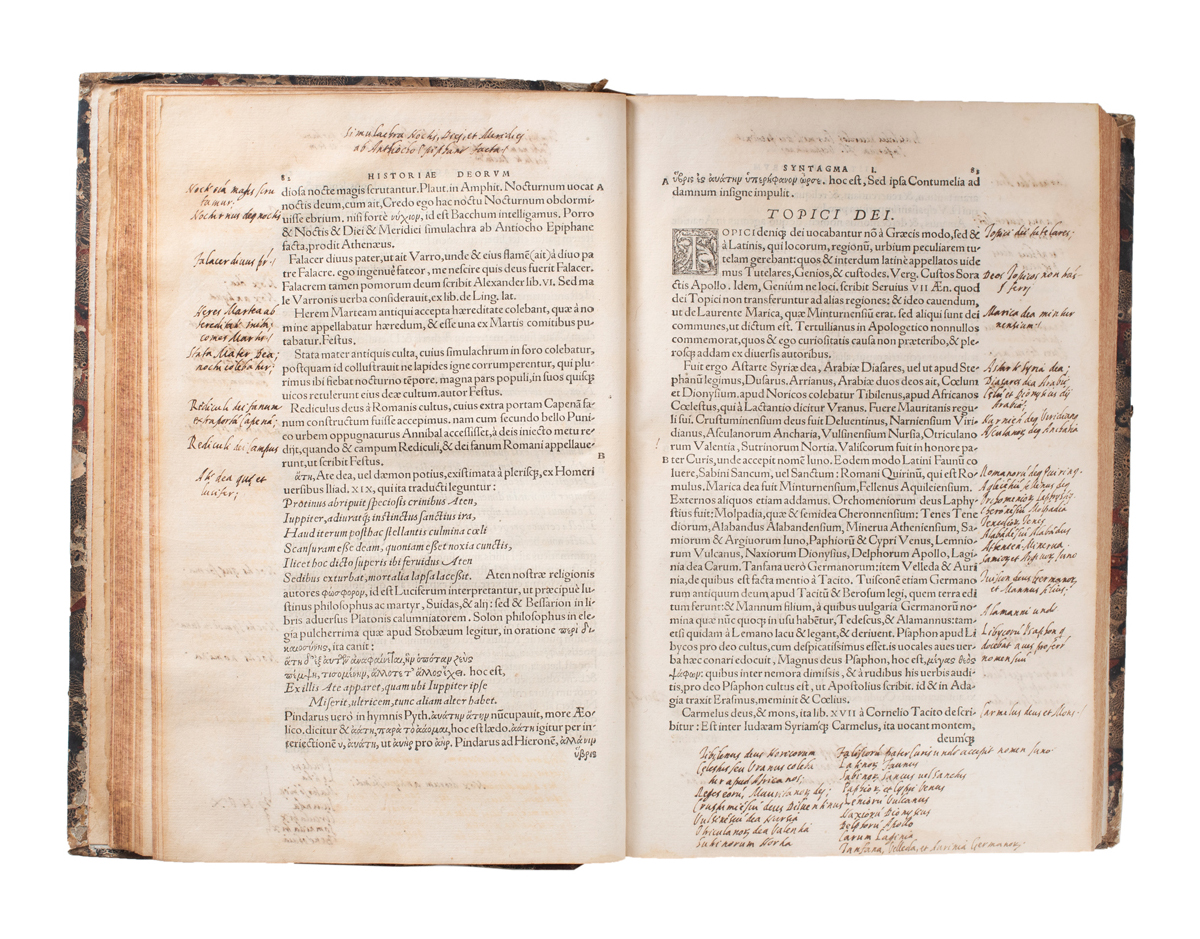 Simulachra Noctis, Diei, et Meridiej
ab Antiocho Epiphane facta
82 HISTORIAE DEORVM
diosa nocte magis scrutantur. Plaut. in Amphit. Nocturnum uocat A
noctis deum, cum ait, Credo ego hac noctu Nocturnum obdormi-
uisse ebrium. nisi fortè νύχιον, id est Bacchum intelligamus. Porro
& Noctis & Diei & Meridiei simulachra ab Antiocho Epiphane
facta, prodit Athenæus.
Falacer diuus pater, ut ait Varro, unde & eius flamē (ait) à diuo pa
tre Falacre. ego ingenuè fateor, me nescire quis deus fuerit Falacer.
Falacrem tamen pomorum deum scribit Alexander lib. VI. Sed ma
le Varronis uerba considerauit, ex lib. de Ling. lat.
Herem Marteam antiqui accepta hæreditate colebant, quæ à no
mine appellabatur hæredum, & esse una ex Martis comitibus pu-
tabatur. Festus.
Stata mater antiquis culta, cuius simulachrum in foro colebatur,
postquam id collustrauit ne lapides igne corrumperentur, qui plu-
rimus ibi fiebat nocturno tēpore, magna pars populi, in suos quisq;
uicos retulerunt eius deæ cultum. autor Festus.
Rediculus deus à Romanis cultus, cuius extra portam Capenã fa-
num constructum fuisse accepimus. nam cum secundo bello Puni-
co urbem oppugnaturus Annibal accessisset, à deis iniecto metu re-
dijt, quando & campum Rediculi, & dei fanum Romani appellaue-
runt, ut scribit Festus. B
ἄτη, Ate dea, uel dæmon potius, existimata à plerisq;, ex Homeri
uersibus Iliad. XIX, qui ita traducti leguntur:
Protinus abripuit speciosis crinibus Aten,
Iuppiter, adiuratq; instinctus sanctius ira,
Haud iterum posthac stellantis culmina cœli
Scansuram esse deam, quoniam esset noxia cunctis,
Ilicet hoc dicto superis ibi feruidus Aten
Sedibus exturbat, mortalia lapsa lacessit. Aten nostræ religionis
autores φωσφορον, id est Luciferum interpretantur, ut præcipuè Iu-
stinus philosophus ac martyr, Suidas, & alij: sed & Bessarion in li-
bris aduersus Platonis calumniatorem. Solon philosophus in ele-
gia pulcherrima quæ apud Stobæum legitur, in oratione περὶ δι-
καιοσύνης, ita canit:
ἄτη δ' ἐξ αὐτῶν ἀναφαίνεται, ἣν ὁπόταν ζεὺς
πέμψη, τισομένην, ἄλλοτε τ' ἄλλος ἔχει. hoc est,
Ex illis Ate apparet, quam ubi Iuppiter ipse
Miserit, ultricem, tunc aliam alter habet.
Pindarus uerò in hymnis Pyth. ἀυάταν ἄτην nūcupauit, more Æo-
lico. dicitur & ἄτη, παρὰ τὸ ἀάσαι, hoc est lædo. ἀάτη igitur per in-
seriectionē ν, ἀνάτη, ut ἀνὴρ pro ἀήρ. Pindarus ad Hieronē, ἀλλά νιν
ὕβρις
Nocturnus deus noctis
Falacer diuus pr.
Stata Mater Dea;
Rediculi dei fanum
extra portā Capenā;
Rediculi dei campus
Ate dea quis et
lucifer;
SYNTAGMA I. 83
A ὕβρις εἰς ἀυάταν ὑπερήφανον ὦρσε. hoc est, Sed ipsa Contumelia ad
damnum insigne impulit.
TOPICI DEI.
TOPICI deniq; dei uocabantur nō à Græcis modo, sed &
à Latinis, qui locorum, regionū, urbium peculiarem tu-
telam gerebant: quos & interdum latinè appellatos uide
mus Tutelares, Genios, & custodes. Verg. Custos Sora
ctis Apollo. Idem, Genium ne loci. scribit Seruius VII Æn. quod
dei Topici non transferuntur ad alias regiones; & ideo cauendum,
ut de Laurente Marica, quæ Minturnensiū erat. sed aliqui sunt dei
communes, ut dictum est. Tertullianus in Apologetico nonnullos
commemorat, quos & ego curiositatis causa non præteribo, & ple-
rosq; addam ex diuersis autoribus.
Fuit ergo Astarte Syriæ dea, Arabiæ Diasares, uel ut apud Ste-
phanū legimus, Dusares. Arrianus, Arabiæ duos deos ait, Cœlum
et Dionysium. apud Noricos colebatur Tibilenus, apud Africanos
Cœlestus, qui à Lactantio dicitur Vranus. Fuere Mauritanis regu-
li sui. Crustuminensium deus fuit Deluentinus, Narniensium Viri-
dianus, Asculanorum Ancharia, Vulsinensium Nursia, Otriculano
rum Valentia, Sutrinorum Nortia. Valiscorum fuit in honore pa-
B ter Curis, unde accepit nomē Iuno. Eodem modo Latini Faunū co
luere, Sabini Sancum, uel Sanctum: Romani Quirinū, qui est Ro-
mulus. Marica dea fuit Minturnensium, Fellenus Aquileiensium.
Externos aliquos etiam addamus. Orchomeniorum deus Laphy-
stius fuit: Molpadia, quæ & semidea Cheronnensium: Tenes Tene
diorum, Alabandus Alabandensium, Minerua Atheniensium, Sa-
miorum & Argiuorum Iuno, Paphiorū & Cypri Venus, Lemnio-
rum Vulcanus, Naxiorum Dionysius, Delphorum Apollo, Lagi-
nia dea Carum. Tanfana uerò Germanorum: item Velleda & Auri
nia, de quibus est facta mentio à Tacito. Tuisconē etiam Germano
rum antiquum deum, apud Tacitū & Berosum legi, quem terra edi
tum ferunt: & Mannum filium, à quibus uulgaria Germanorū no-
mina quæ nūc quoq; in usu habētur, Tedescus, & Alamannus: tam-
etsi quidam à Lemano lacu & legant, & deriuent. Psaphon apud Li
bycos pro deo cultus, cum despicatissimus esset. is uocales aues uer-
ba hæc conari edocuit, Magnus deus Psaphon, hoc est, μέγας θεὸς
ψάφων: quibus inter nemora dimissis, & à rudibus his uerbis audi-
tis, pro deo Psaphon cultus est, ut Apostolius scribit. id & in Ada-
gia traxit Erasmus, meminit & Cœlius.
Carmelus deus, & mons, ita lib. XVII à Cornelio Tacito descri
bitur: Est inter Iudæam Syriamq; Carmelus, ita uocant montem,
deumq;
Topici dii tutelares;
Marica dea minturnensium
Alamanni unde
Carmelus deus et Mons.
Tibilenus deus Noricorum
Vulsinesiū dea Nursia
Otriculanor dea Valentia
Latinor Faunus
Sabinor Sancus uel Sanctus
Paphior et Cypri Venus
Lemniorū Vulcanus
Naxiorū Dionysius
Delphorū Apollo
Carum Laginia
Tanfana, Velleda, et Aurinia Germanor